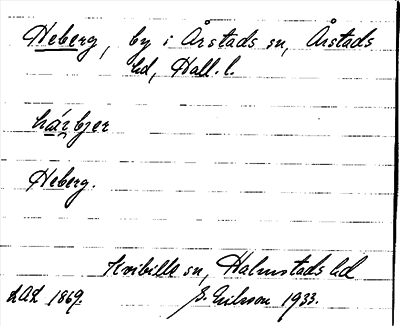 Heberg, by i Årstads sn, Årstads
hd, Hall. l.
hárbjer
Heberg.
Kvibille sn, Halmstads hd
1869. 1933.